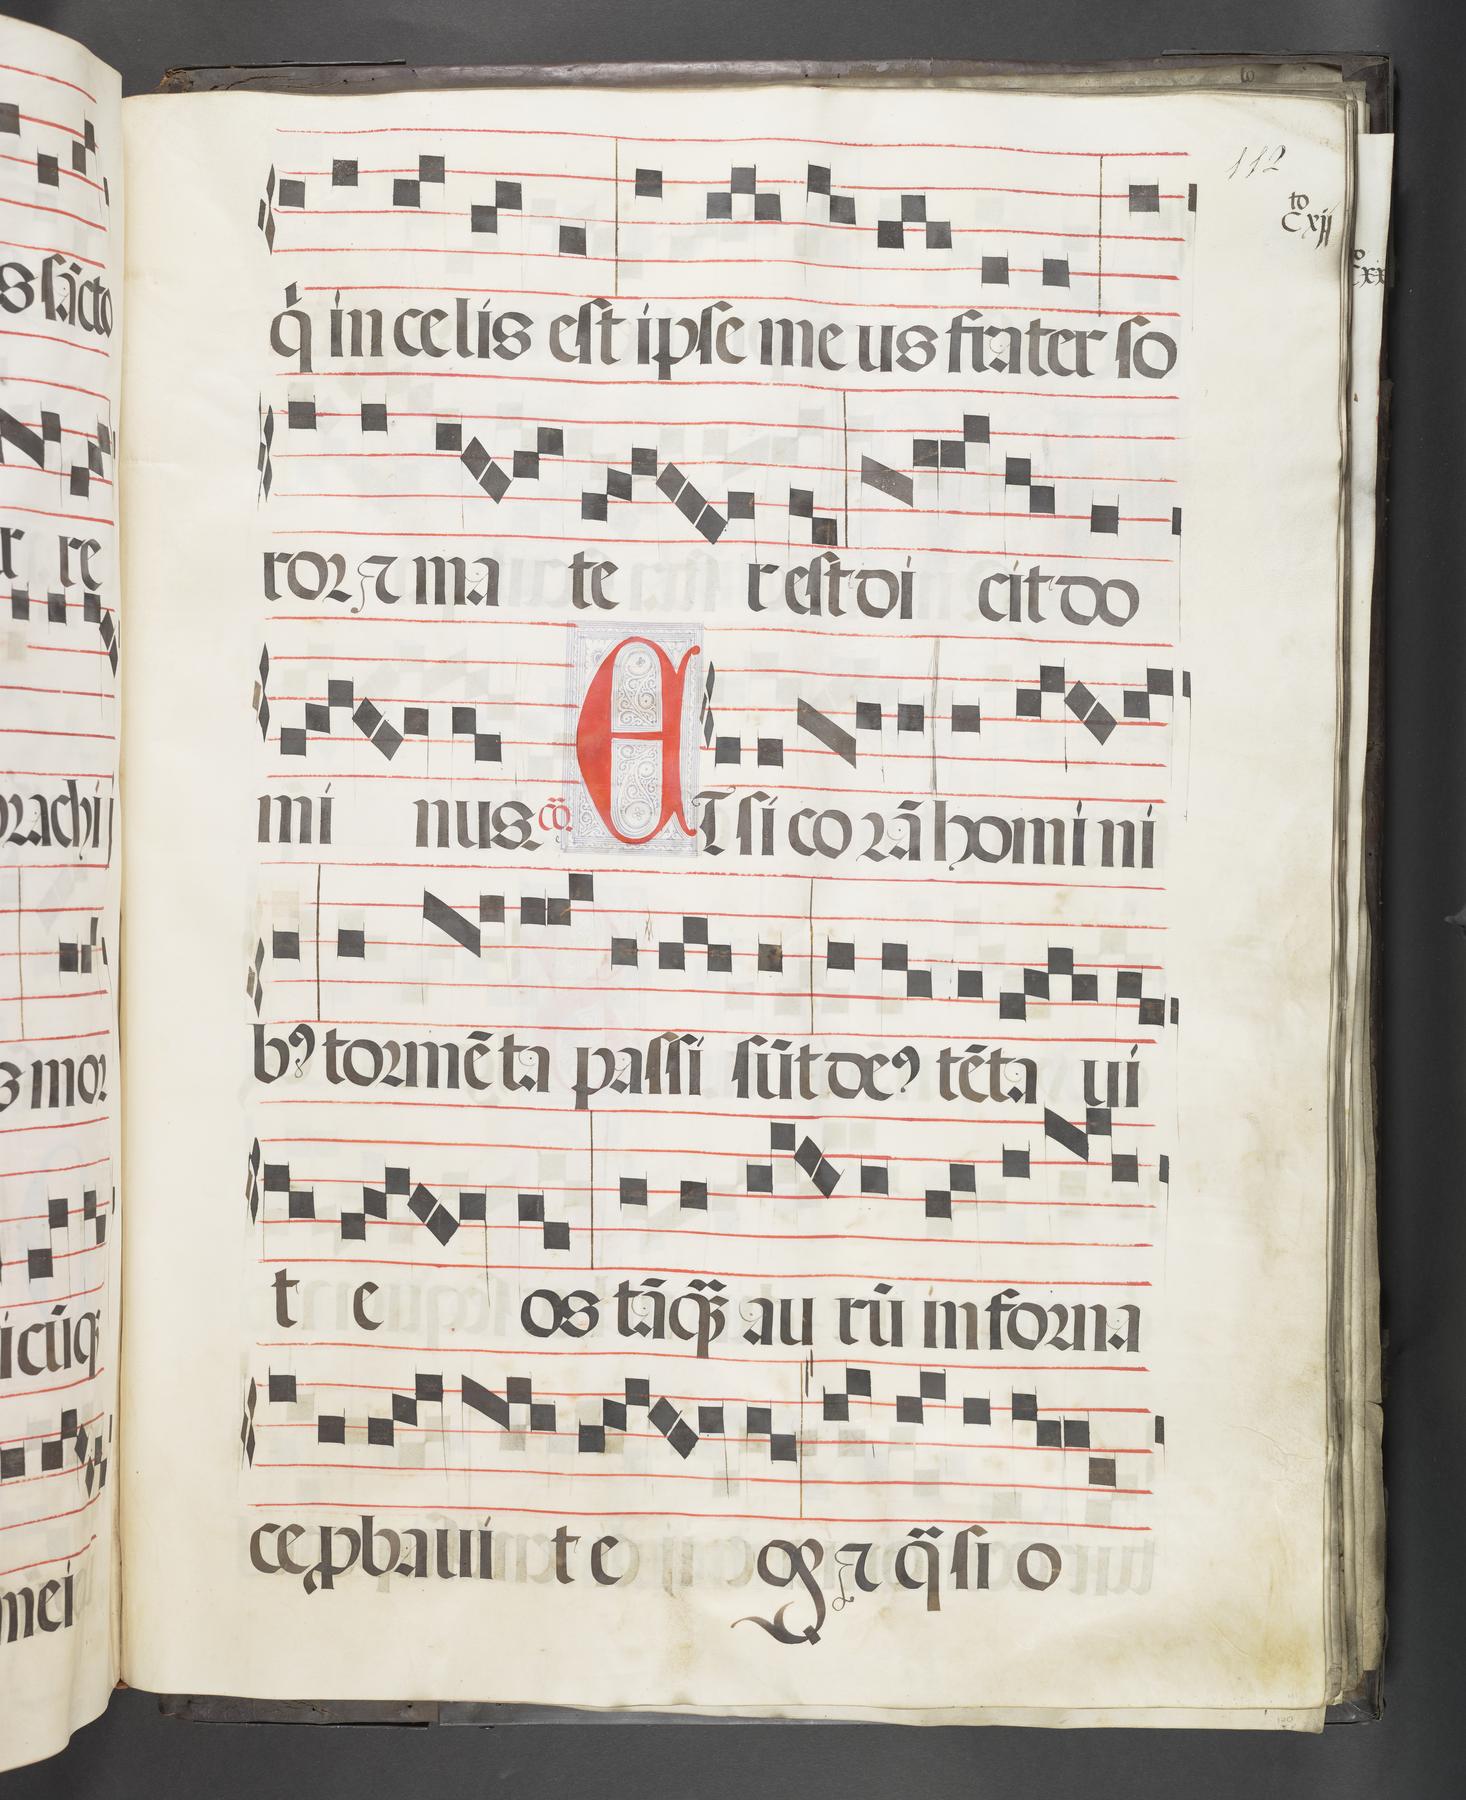 112
to
Cxij
q̄ in celis est ipse me us frater so
ror ⁊ ma te r est di cit do
mi nus. cō. ET si corā homi ni
bꝰ tormēta passi sūt deꝰ tēta ui
t e os tāq̄ȝ au rū in forna
ce ꝓbaui t e os ⁊ q̄si o
s sācto
r re
brachij
s mor
icūqȝ
mei